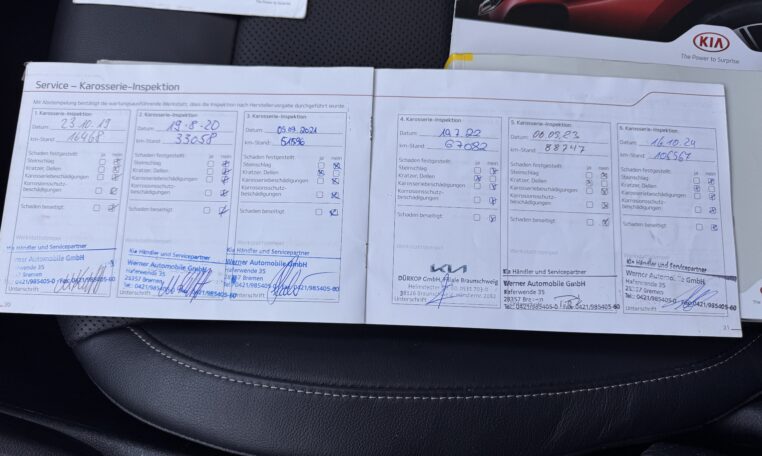 The Power to Surprise
KIA
The Power to Surprise
Service – Karosserie-Inspektion
Mit Abstempelung bestätigt die wartungsausführende Werkstatt, dass die Inspektion nach Herstellervorgabe durchgeführt wurde.
1. Karosserie-Inspektion
Datum 23.10.19
km-Stand 16468
Schaden festgestellt: ja nein
Steinschlag
Kratzer, Dellen
Karosseriebeschädigungen
Korrosionsschutz-
beschädigungen
Schaden beseitigt:
Werkstattstempel
Kia Händler und Servicepartner
rner Automobile GmbH
afenwende 35
Bremen
0421/985405-0 Fax: 0421/985405-60
Unterschrift
2. Karosserie-Inspektion
Datum 19-8-20
km-Stand 33058
Schaden festgestellt: ja nein
Steinschlag
Kratzer, Dellen
Karosseriebeschädigungen
Korrosionsschutz-
beschädigungen
Schaden beseitigt:
Werkstattstempel
Kia Händler und Servicepartner
Werner Automobile GmbH
Haferwende 35
28357 Bremen
Tel.: 0421/985405-0
Unterschrift
3. Karosserie-Inspektion
Datum 09.09.2021
km-Stand 51596
Schaden festgestellt: ja nein
Steinschlag
Kratzer, Dellen
Karosseriebeschädigungen
Korrosionsschutz-
beschädigungen
Schaden beseitigt:
Werkstattstempel
Kia Händler und Servicepartner
Werner Automobile GmbH
Haferwende 35
28357 Bremen
Unterschrift
4. Karosserie-Inspektion
Datum 19.7.22
km-Stand 67082
Schaden festgestellt: ja nein
Steinschlag
Kratzer, Dellen
Karosseriebeschädigungen
Korrosionsschutz-
beschädigungen
Schaden beseitigt:
Werkstattstempel
KIA
DÜRKOP GmbH, Filiale Braunschweig
Unterschrift
5. Karosserie-Inspektion
km-Stand 88747
Schaden festgestellt: ja nein
Steinschlag
Kratzer, Dellen
Karosseriebeschädigungen
Korrosionsschutz-
beschädigungen
Schaden beseitigt:
Werkstattstempel
Kia Händler und Servicepartner
Werner Automobile GmbH
Haferwende 35
28357 Bremen
Tel.: 0421/985405-0
Unterschrift
6. Karosserie-Inspektion
Datum 16.10.24
km-Stand 106567
Schaden festgestellt: ja nein
Steinschlag
Kratzer, Dellen
Karosseriebeschädigungen
Korrosionsschutz-
beschädigungen
Schaden beseitigt:
Werkstattstempel
Kia Händler und Servicepartner
Werner Automobile GmbH
Haferwende 35
Bremen
Tel.: 0421/985405-0
Unterschrift
30
31